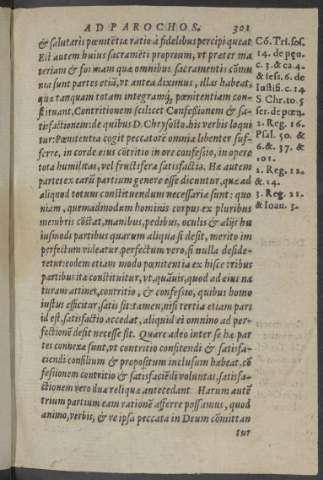 AD PAROCHOS. 301
& salutaris pœnitẽtiæ ratio à fidelibus percipi queat
Est autem huius sacramẽti proprium, vt præter ma
teriam & formam quæ omnibus sacramentis cõmu
nia sunt partes etiã, vt antea diximus, illas habeat,
quæ tanquam totam integramq́; pœnitentiam con-
stituant, Contritionem scilicet Confessionem & sa-
tisfactionem: de quibus D. Chrysosto. his verbis loqui
tur: Pœnitentia cogit peccatorẽ omnia libenter suf-
ferre, in corde eius cõtritio in ore confessio, in opere
tota humilitas, vel fructifera satisfactio. Hæ autem
partes ex earũ partium genere esse dicuntur, quæ ad
aliquod totum constituendum necessariæ sunt: quo
niam, quemadmodum hominis corpus ex pluribus
membris cõstat, manibus, pedibus, oculis & alijs hu
iusmodi partibus quarum aliqua si desit, merito im
perfectum videatur, perfectum vero, si nulla deside-
retur: eodem etiam modo pœnitentia ex hisce tribus
partibus ita constituitur, vt, quãuis, quod ad eius na
turam attinet, contritio, & confessio, quibus homo
iustus efficitur, satis sit: tamen, nisi tertia etiam pars
id est, satisfactio accedat, aliquid ei omnino ad per-
fectionẽ desit necesse sit. Quare adeo inter se hæ par
tes connexæ sunt, vt contritio confitendi & satisfa-
ciendi consilium & propositum inclusum habeat, cõ
fessionem contritio & satisfaciẽdi voluntas, satisfa-
ctionem vero duæ reliquæ antecedant. Harum autẽ
trium partium eam rationẽ afferre possumus, quod
animo, verbis, & re ipsa peccata in Deum cõmittan
tur
Cõ. Tri. ses.
14. de pœn.
c. 3. & ca. 4.
& sess. 6. de
Iustifi. c. 14
S Chr. to. 5
ser. de pœn.
2. Reg. 16.
Psal. 50. &
6. &. 37. &
101.
1. Reg. 12.
&. 14.
3. Reg. 21.
& Ioan. 3.